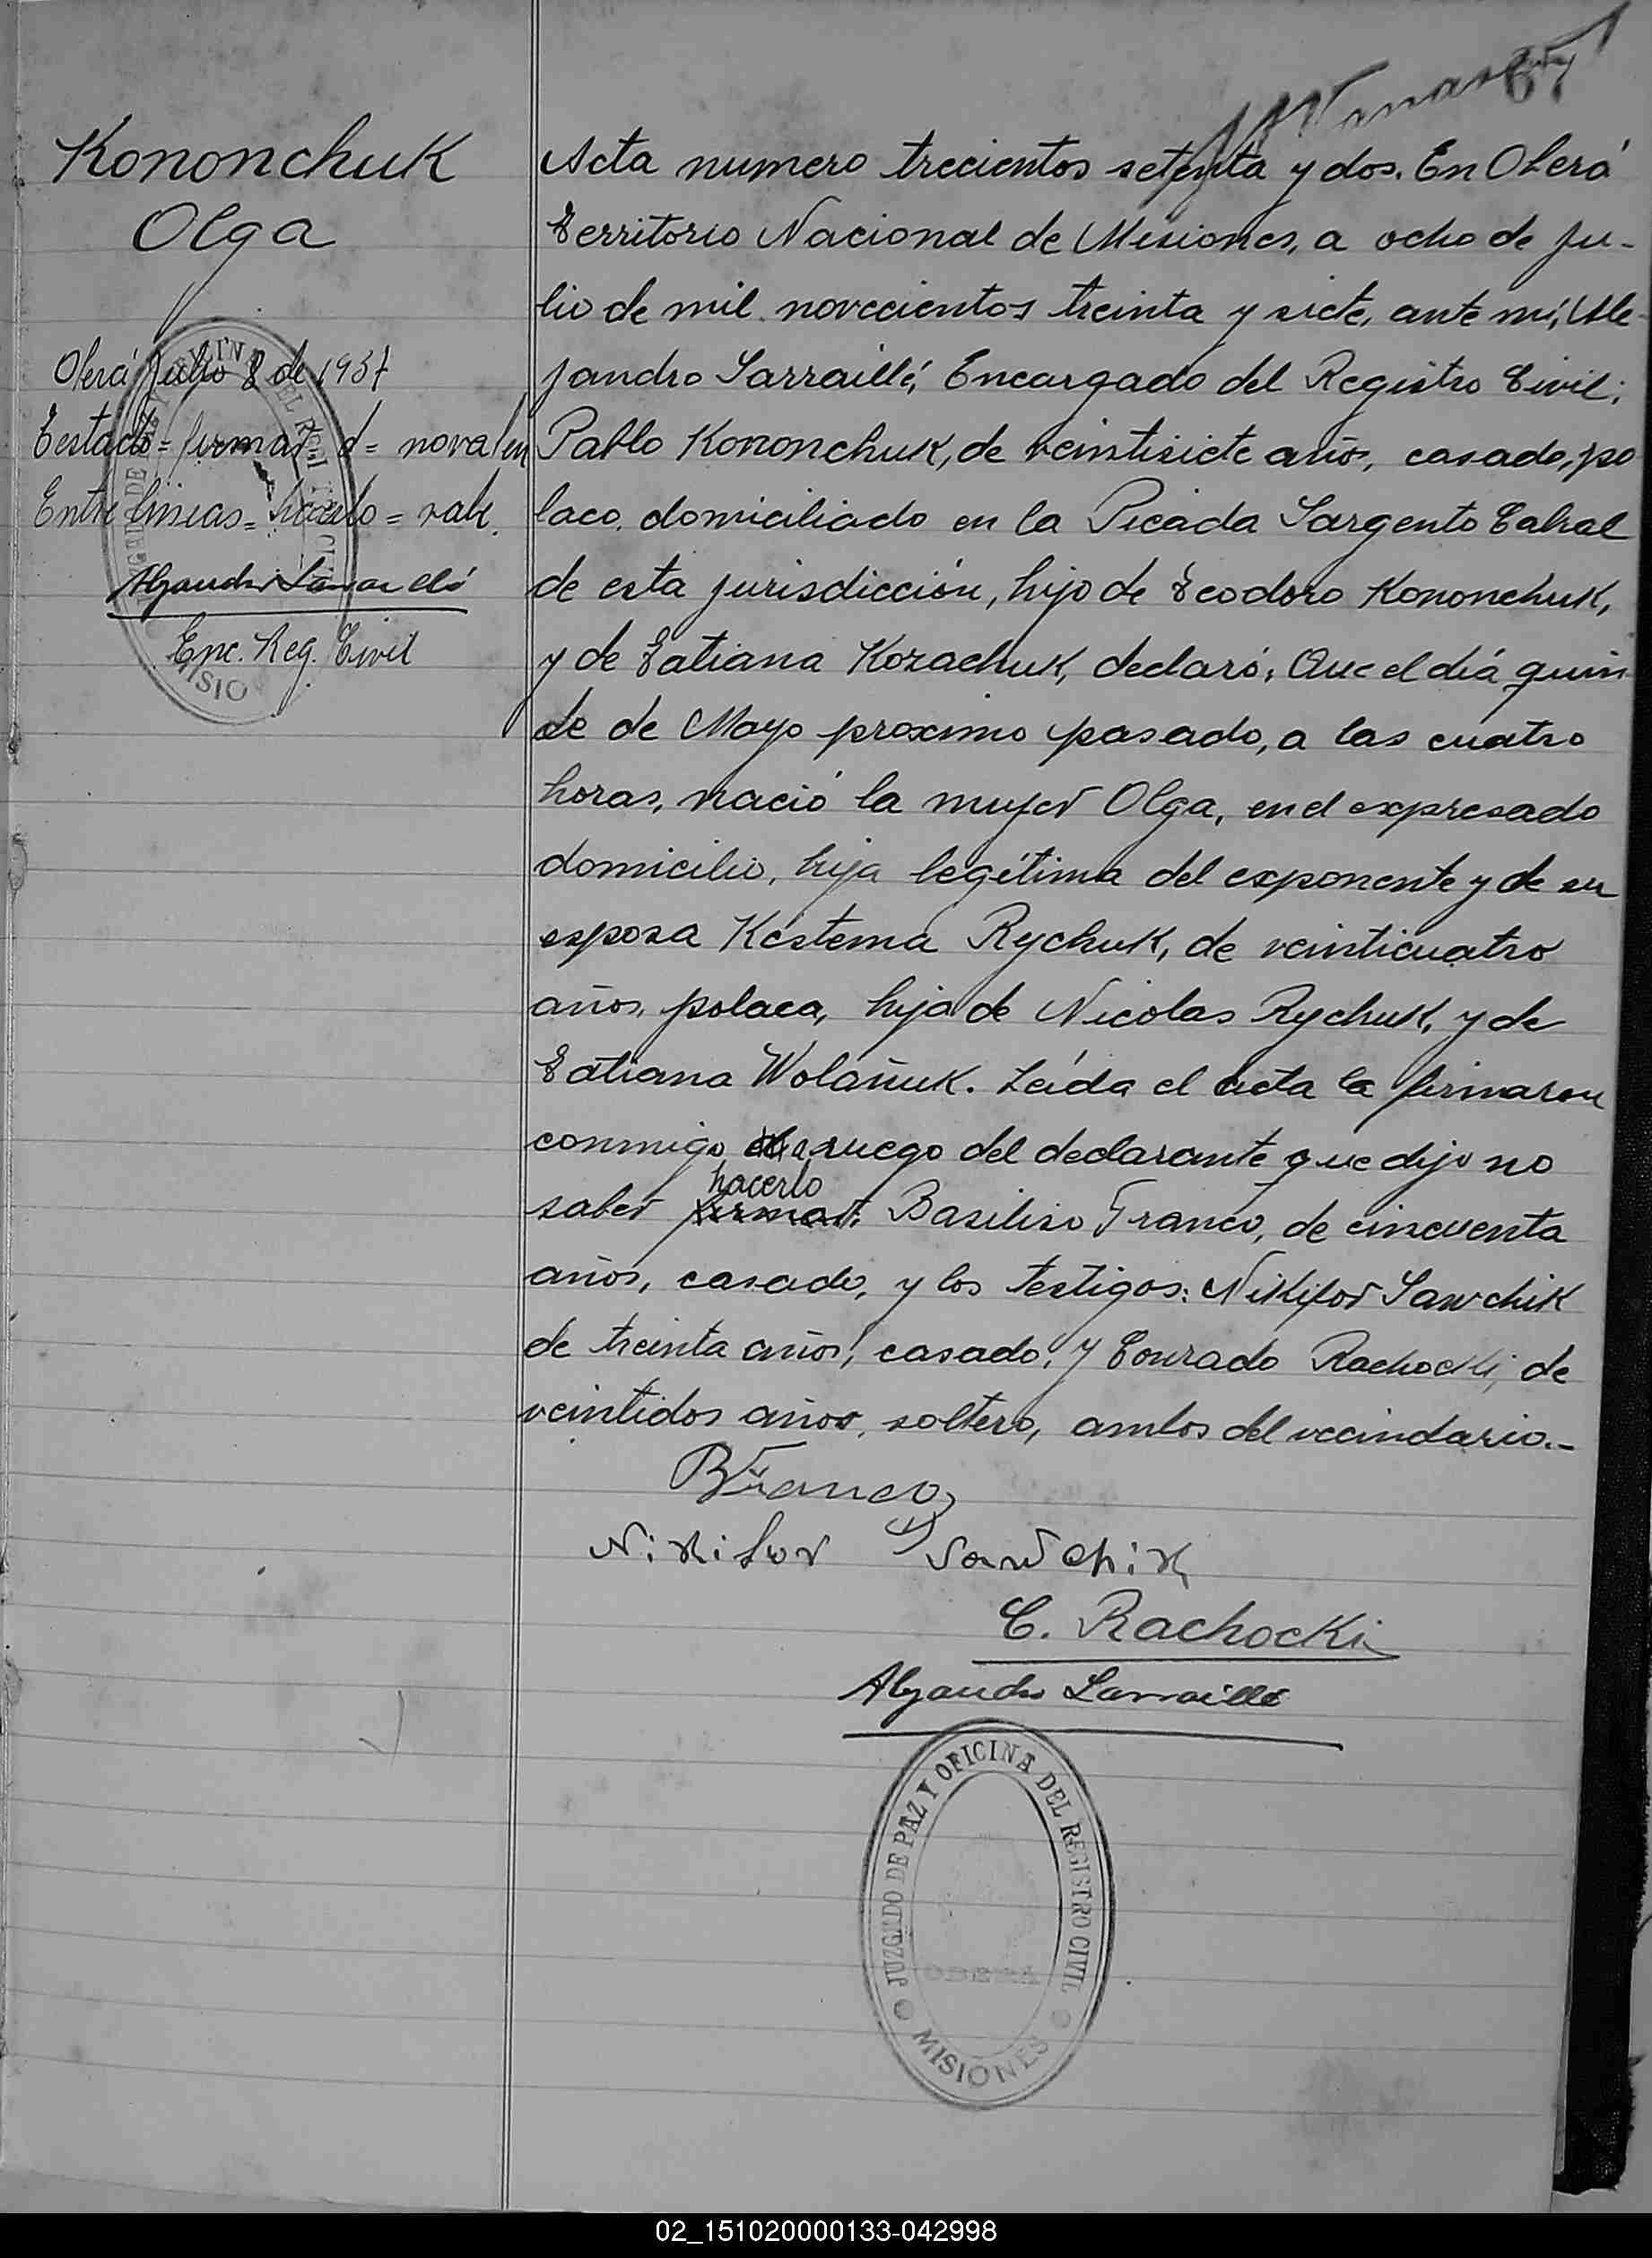 Kononchuk
Olga
Oberá Julio 8 de 1937
Testado = firmar d = no vale en
Entre lineas = hacerlo = vale.
Alejandro Larraillé
Enc. Reg. Civil
MISIO
Acta numero trecientos setenta y dos. En Oberá
Territorio Nacional de Misiones, a ocho de ju-
lio de mil novecientos treinta y siete, ante mí, Ale-
jandro Larraillé, Encargado del Registro Civil;
Pablo Kononchuk, de veintisiete años, casado, po
laco, domiciliado en la Picada Sargento Cabral
de esta jurisdicción, hijo de Teodoro Kononchuk,
y de Tatiana Kozachuk, declaró; Que el día quin
ce de Mayo proximo pasado, a las cuatro
horas, nació la mujer Olga, en el expresado
domicilio, hija legítima del exponente y de su
esposa Kestema Rychuk, de veinticuatro
años, polaca, hija de Nicolas Rychuk, y de
Tatiana Wolañuk. Leída el acta la firmaron
conmigo a ruego del declarante que dijo no
hacerlo
saber firmar; Basiliso Franco, de cincuenta
años, casado, y los testigos: Nikifor Sawchik
de treinta años, casado, y Conrado Rachocki, de
veintidos años, soltero, ambos del vecindario.-
BFranco
Nikifor Sawchik
C. Rachocki
Alejandro Larraillé
JUZGADO DE PAZ Y OFICINA DEL REGISTRO CIVIL
OBERA
MISIONES
02_151020000133-042998